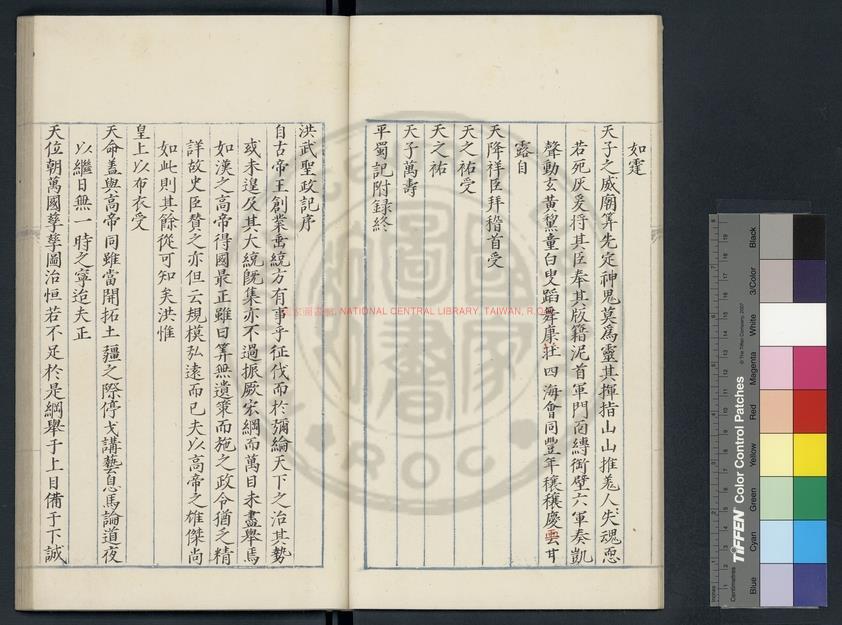 如霆
天子之威廟筭先定神鬼莫爲靈其揮指山山摧羗人失魂惡
若死灰爰将其臣奉其版籍泥首軍門面縛銜璧六軍奏凱
聲動玄黃鬢童白叟蹈舞康莊四海會同豐年穰穰慶雲甘
露自
天降祥臣拜稽首受
天之祐受
天之祐
天子萬壽
平蜀記附録終
洪武聖政記序
自古帝王創業垂統方有事乎征伐而於彌綸天下之治其勢
或未遑及其大統旣集亦不過振厥宏綱而萬目未盡舉焉
如漢之高帝得國最正雖曰筭無遺策而施之政令猶乏精
詳故史臣贊之亦但云規模弘遠而已夫以高帝之雄傑尚
如此則其餘從可知矣洪惟
皇上以布衣受
天命盖與高帝同雖當開拓土疆之際停戈講藝息馬論道夜
以繼日無一時之寧迨夫正
天位朝萬國孳孳圖治恒若不足於是綱舉于上目備于下誠
國家圖書館, NATIONAL CENTRAL LIBRARY, TAIWAN, R.O.C
ROC
TIFFEN Color Control Patches
© The Tiffen Company, 2007
Centimetres
Blue
Cyan
Green
Yellow
Red
Magenta
White
3/Color
Black